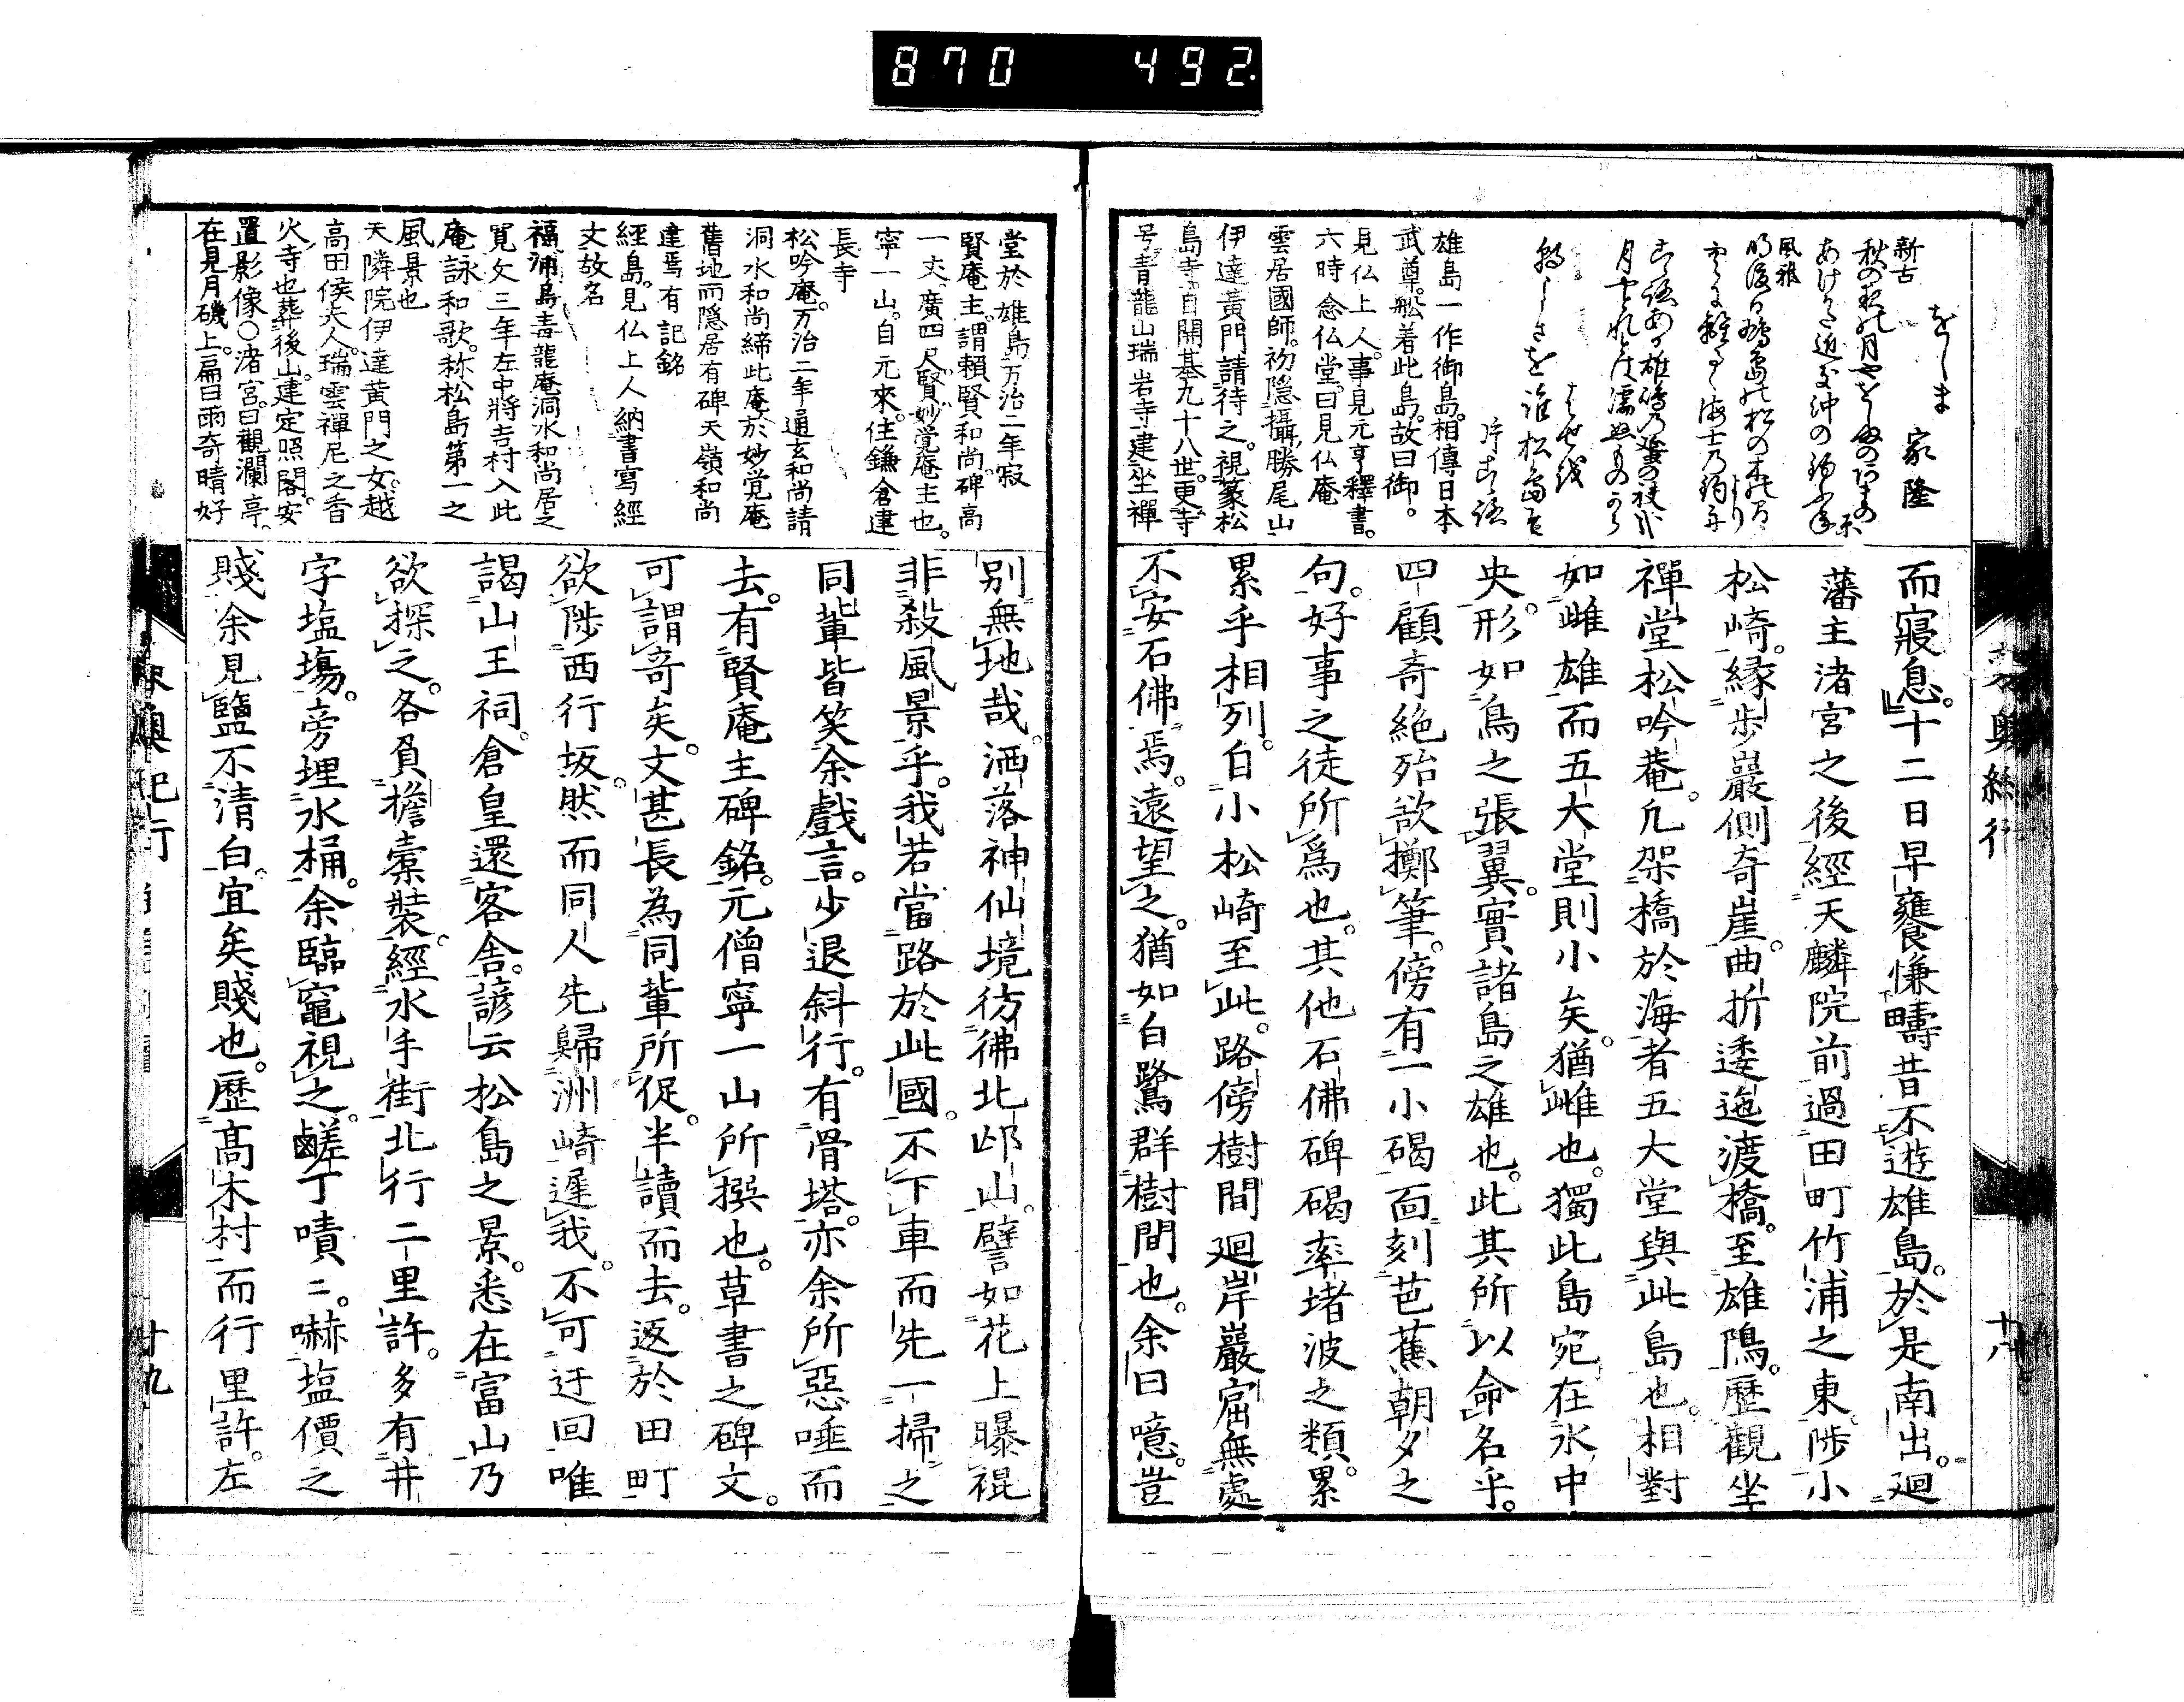 870 492.
をしま 家隆
新古
風雅
雄島一作御島。相傳日本
武尊舩着此島。故曰御。
見仏上人。事見元亨釋書。
六時念仏堂。曰見仏庵
雲居國師。初隠攝勝尾山
伊達黃門請待之。視篆松
島寺。自開基九十八世。更寺
号青龍山瑞岩寺建坐禪
而寢息。十二日早饔慊疇昔不遊雄島。於是南出。迴
藩主渚宮之後經天麟院前過田町竹浦之東。陟小
松崎。縁歩巖側奇崖。曲折逶迤渡橋。至雄隝。歷觀坐
禪堂松吟菴。凡架橋於海者五大堂與此島也。相對
如雌雄而五大堂則小矣。猶雌也。獨此島宛在水中
央。形如鳥之張翼。實諸島之雄也。此其所以命名乎。
四顧奇絕殆欲擲筆。傍有一小碣面刻芭蕉朝夕之
句。好事之徒所爲也。其他石佛碑碣率堵波之類。累
累乎相列。自小松崎至此。路傍樹間廻岸巖窟無處
不安石佛焉。遠望之。猶如白鷺群樹間也。余曰噫。豈
堂於雄島万治二年寂
賢庵主。謂賴賢和尚。碑高
一丈、廣四尺。賢妙覚庵主也。
寧一山。自元來。住鎌倉建
長寺
松吟庵。万治二年通玄和尚請
洞水和尚締此庵於妙覚庵
舊地而隠居有碑天嶺和尚
建焉有記銘
經島。見仏上人納書寫經
丈故名
福浦島毒龍庵洞水和尚居之
寛文三年左中將吉村入此
庵詠和歌。称松島第一之
風景也
天隣院伊達黃門之女。越
高田侯夫人。瑞雲禪尼之香
火寺也葬後山。建定照閣。安
置影像〇渚宮。曰觀瀾亭。
在見月磯上。扁曰雨奇晴好
別無地哉。洒落神仙境彷彿北邙山。譬如花上曝裩
非殺風景乎。我若當路於此國。不下車而先一掃之
同輩皆笑余戲言。少退斜行。有骨塔。亦余所惡唾而
去。有賢庵主碑銘。元僧寧一山所撰也。草書之碑文。
可謂奇矣。文甚長為同輩所促。半讀而去。返於田町
欲陟西行坂。然而同人先歸洲崎遲我。不可迂回唯
謁山王祠。倉皇還客舎。諺云松島之景。悉在富山乃
欲探之。各負擔橐裝。經水手街北行二里許。多有井
字塩塲。旁埋水桶。余臨竈視之。鹺丁嘖々。嚇塩價之
賤余見鹽不清白。宜矣賤也。歷髙木村而行里許。左
奥紀行
十八
廿九